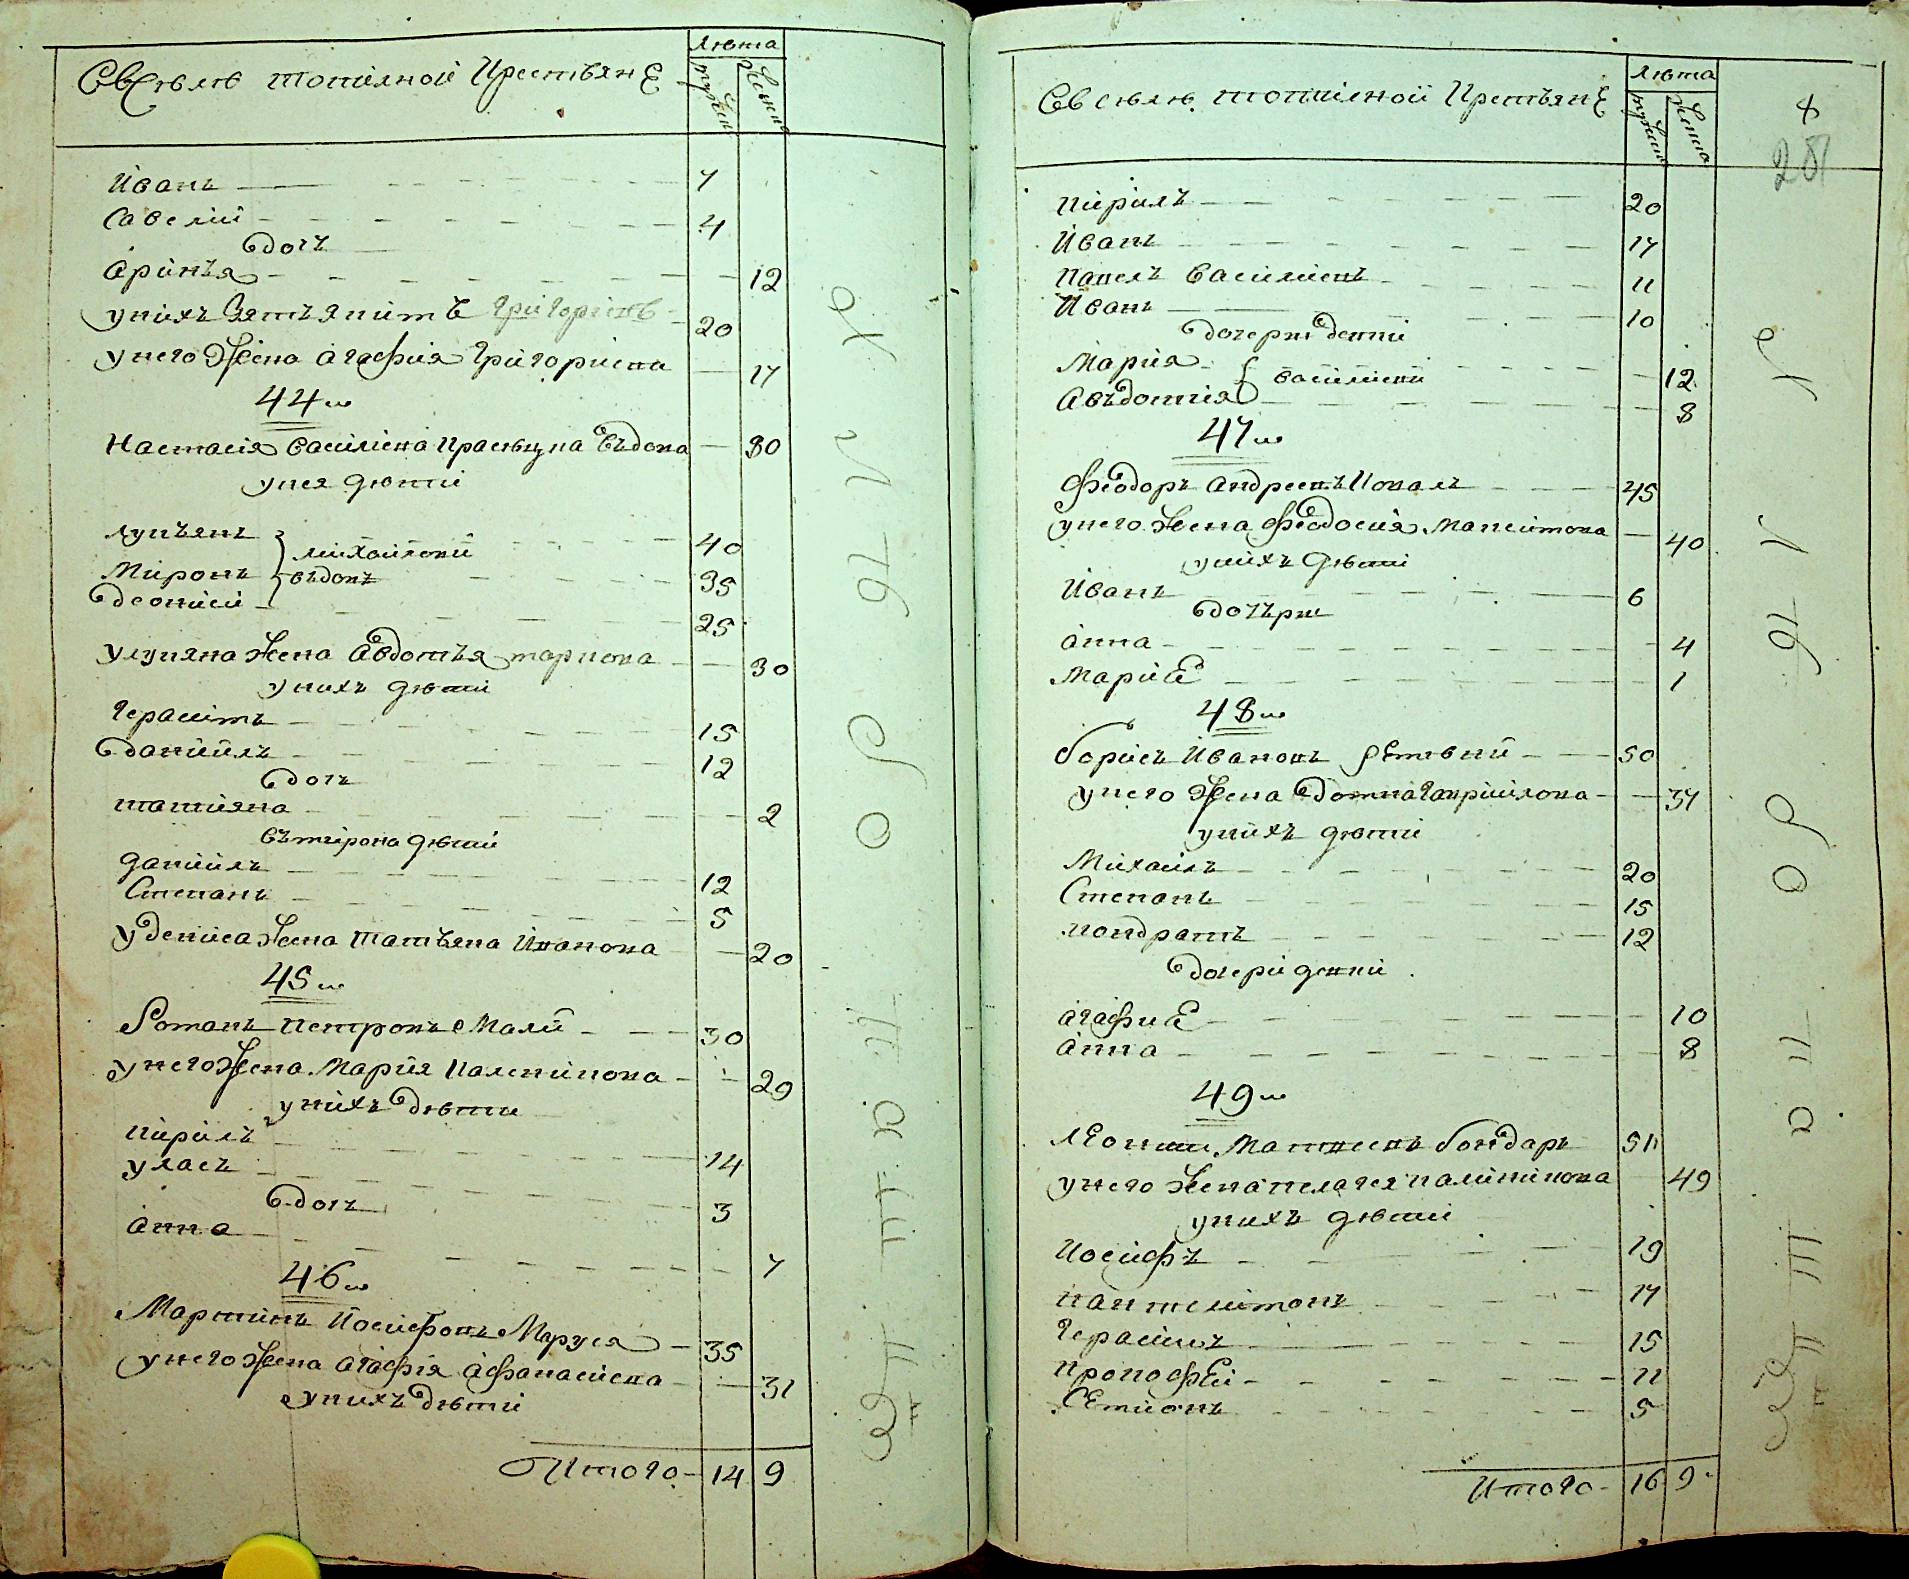 Въ Селѣ Топилной Крестьяне
лѣта
мужеск
женск
Иванъ 7
Савелий 4
дочь
Аринья 12
у нихъ зять Никита Григориевъ 20
у него жена Агафия Григориева 17
44 ш
Настасия Василиева Кравцука вдова 80
у нея дѣти
Лукьянъ 40
Михайловы
Миронъ вдовъ 35
Деонисий 25
у Лукяна жена Авдотья Маркова 30
у нихъ дѣти
Герасимъ 15
Даниилъ 12
дочь
Татияна 2
въ Мирона дѣти
Даниилъ 12
Степанъ 5
у Дениса жена Татьяна Иванова 20
45 ш
Романъ Петровъ Малый 30
у него жена Мария Каленикова 29
у нихъ дѣти
Кирилъ 14
Уласъ 3
дочь
Анна 7
46 ш
Мартинъ Иосифовъ Маруся 35
у него жена Агафія Афанасиева 31
у нихъ дѣти
Итого 14 9
Въ Селѣ Топилной Крестьяне
лѣта
мужеск
женск
Кирилъ 20
Иванъ 17
Павелъ Василиевъ 11
Иванъ 10
дочери девки
Мария 12
Василиеви
Авъдотия 8
47 ш
Феодоръ Андреевъ Коваль 45
у него жена Феодосия Максимова 40
у нихъ дѣти
Иванъ 6
дочъри
Анна 4
Мария 1
48 ш
Борисъ Ивановъ 50
у него жена Домна Гавриилова 37
у нихъ дѣти
Михаилъ 20
Степанъ 15
Кондратъ 12
дочери девки
Агафия 10
Анна 8
49 ш
Леонтий Матвеевъ Бондаръ 51
у него жена Пелагея Калиникова 49
у нихъ дѣти
Иосифъ 19
Пантелимонъ 17
Герасимъ 15
Прокофей 11
Семионъ 5
Итого 16 9